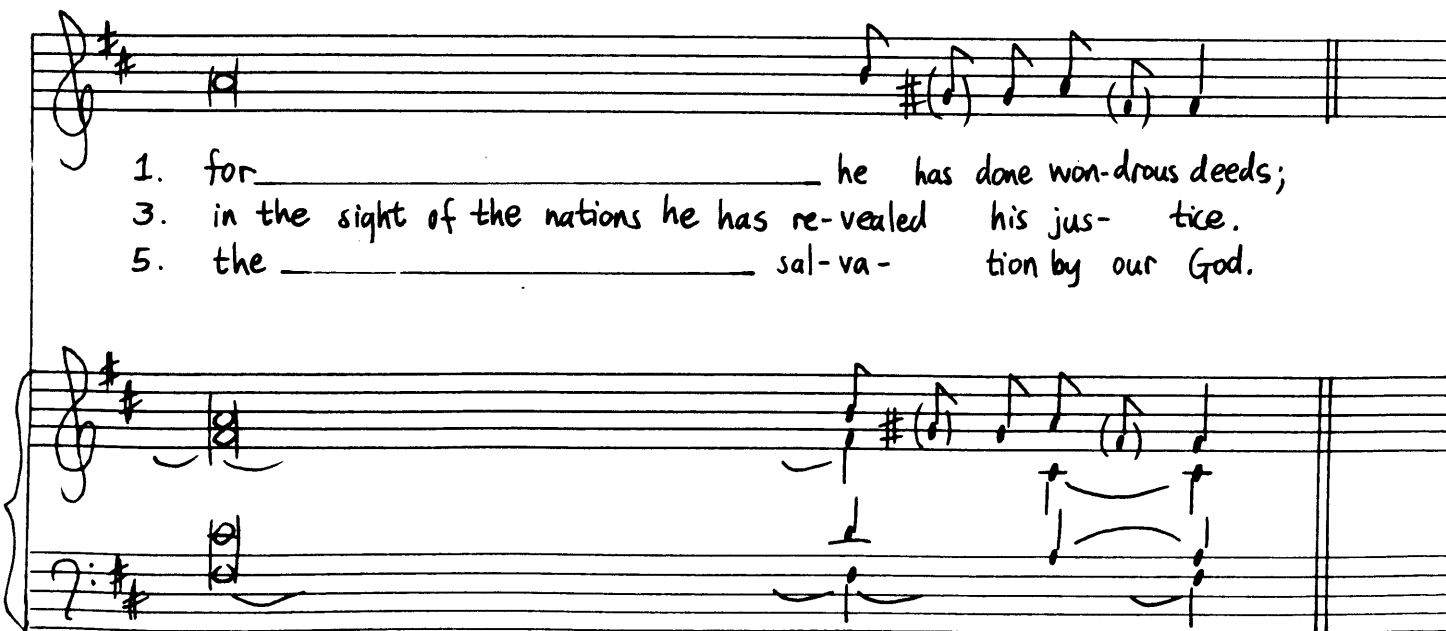 1. for______ he has done won-drous deeds;
3. in the sight of the nations he has re-vealed his jus- tice.
5. the ______ sal-va- tion by our God.